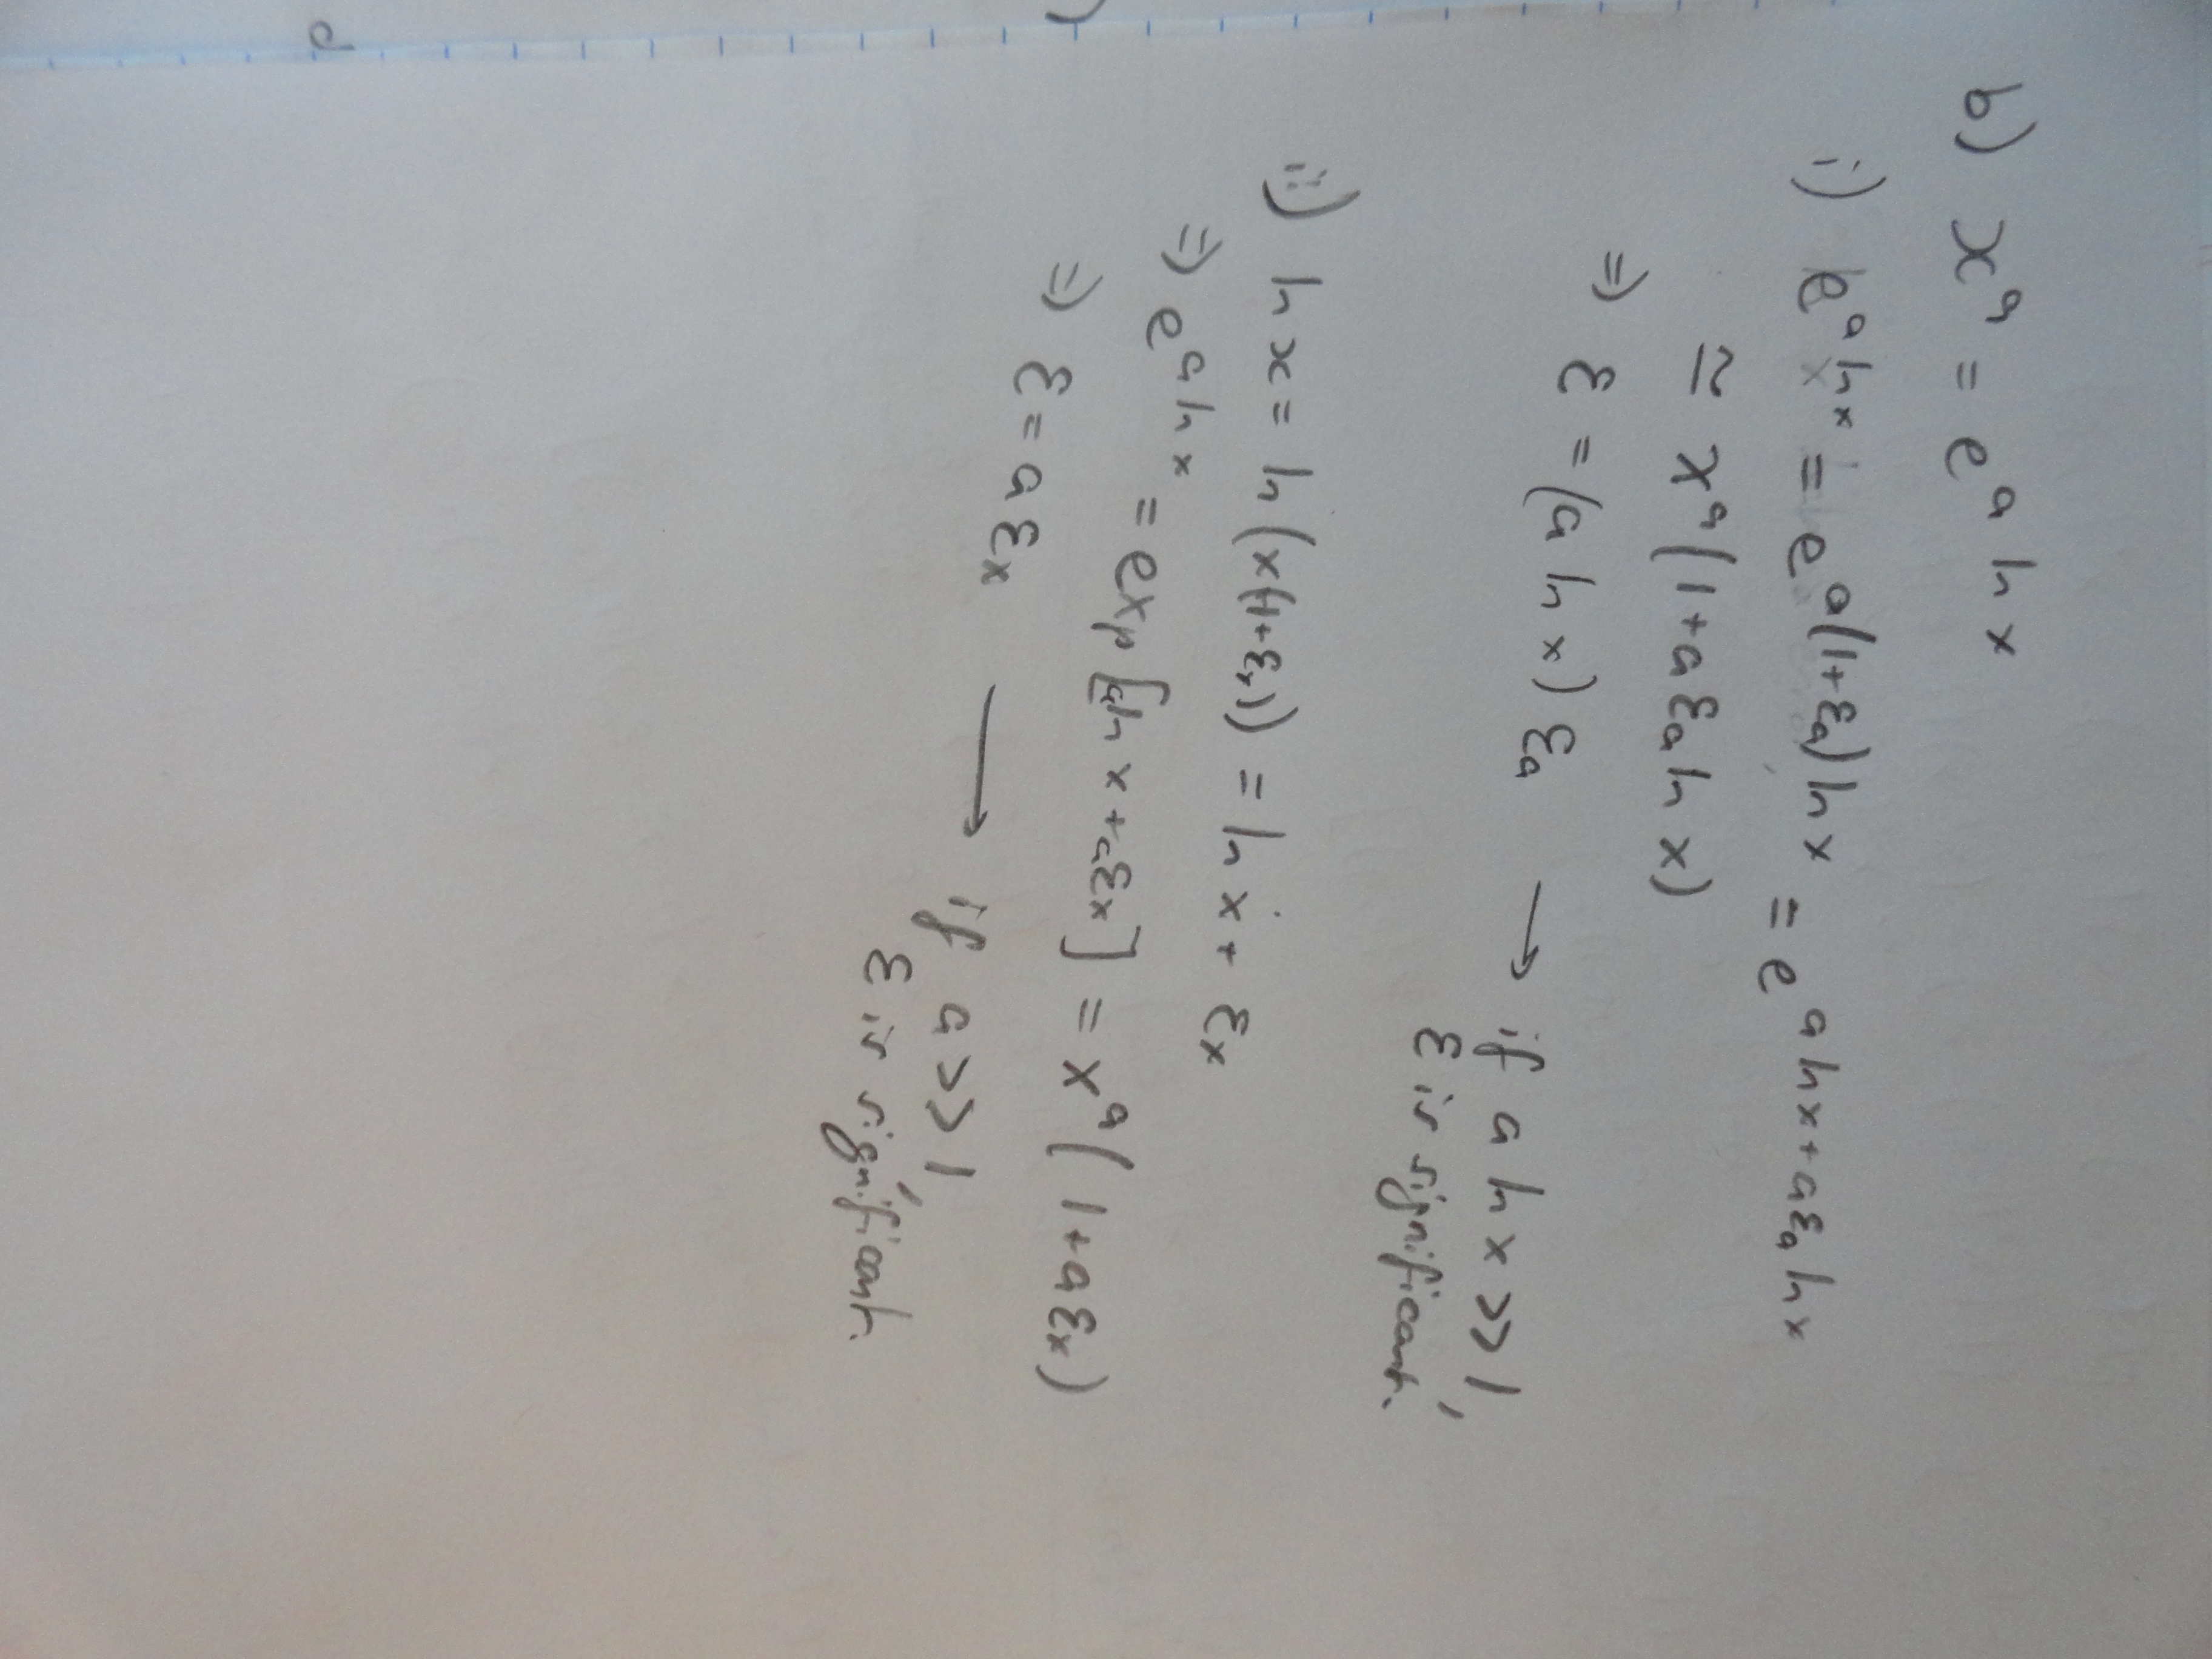 b) x^a = e^{a ln x}
i) e^{a ln x} = e^{a(1+ε_a) ln x} = e^{a ln x + a ε_a ln x}
≃ x^a (1 + a ε_a ln x)
⇒ ε = (a ln x) ε_a → if a ln x >> 1,
ε is significant.
ii) ln x = ln (x(1+ε_x)) = ln x + ε_x
⇒ e^{a ln x} = exp [a ln x + a ε_x] = x^a (1 + a ε_x)
⇒ ε = a ε_x → if a >> 1,
ε is significant.